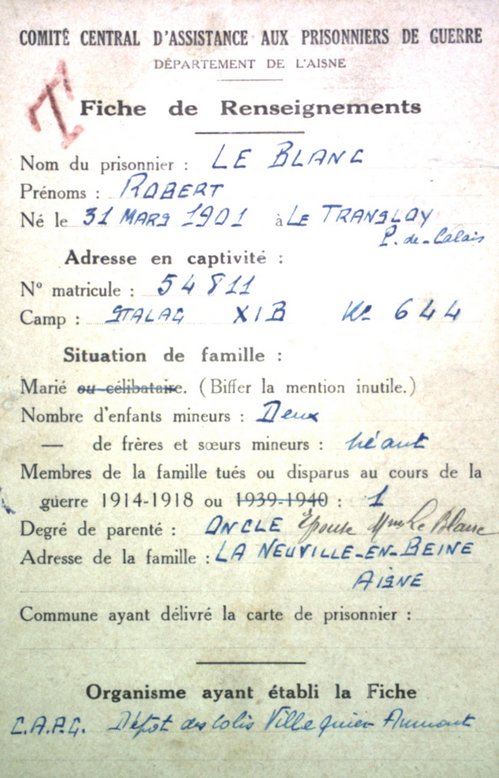 COMITÉ CENTRAL D'ASSISTANCE AUX PRISONNIERS DE GUERRE
DÉPARTEMENT DE L'AISNE
Fiche de Renseignements
Nom du prisonnier : LE BLANC
Prénoms : ROBERT
Né le 31 MARS 1901 à LE TRANSLOY
P. de-Calais
Adresse en captivité :
N° matricule : 54811
Camp : STALAG XIB Kº 644
Situation de famille :
Marié ou célibataire. (Biffer la mention inutile.)
Nombre d'enfants mineurs : Deux
— de frères et sœurs mineurs : Néant
Membres de la famille tués ou disparus au cours de la
guerre 1914-1918 ou 1939-1940 : 1
Degré de parenté : ONCLE Epouse Mme Le Blanc
Adresse de la famille : LA NEUVILLE-EN-BEINE
AISNE
Commune ayant délivré la carte de prisonnier :
Organisme ayant établi la Fiche
C.A.P.G. Dépôt des colis Villequier Aumont